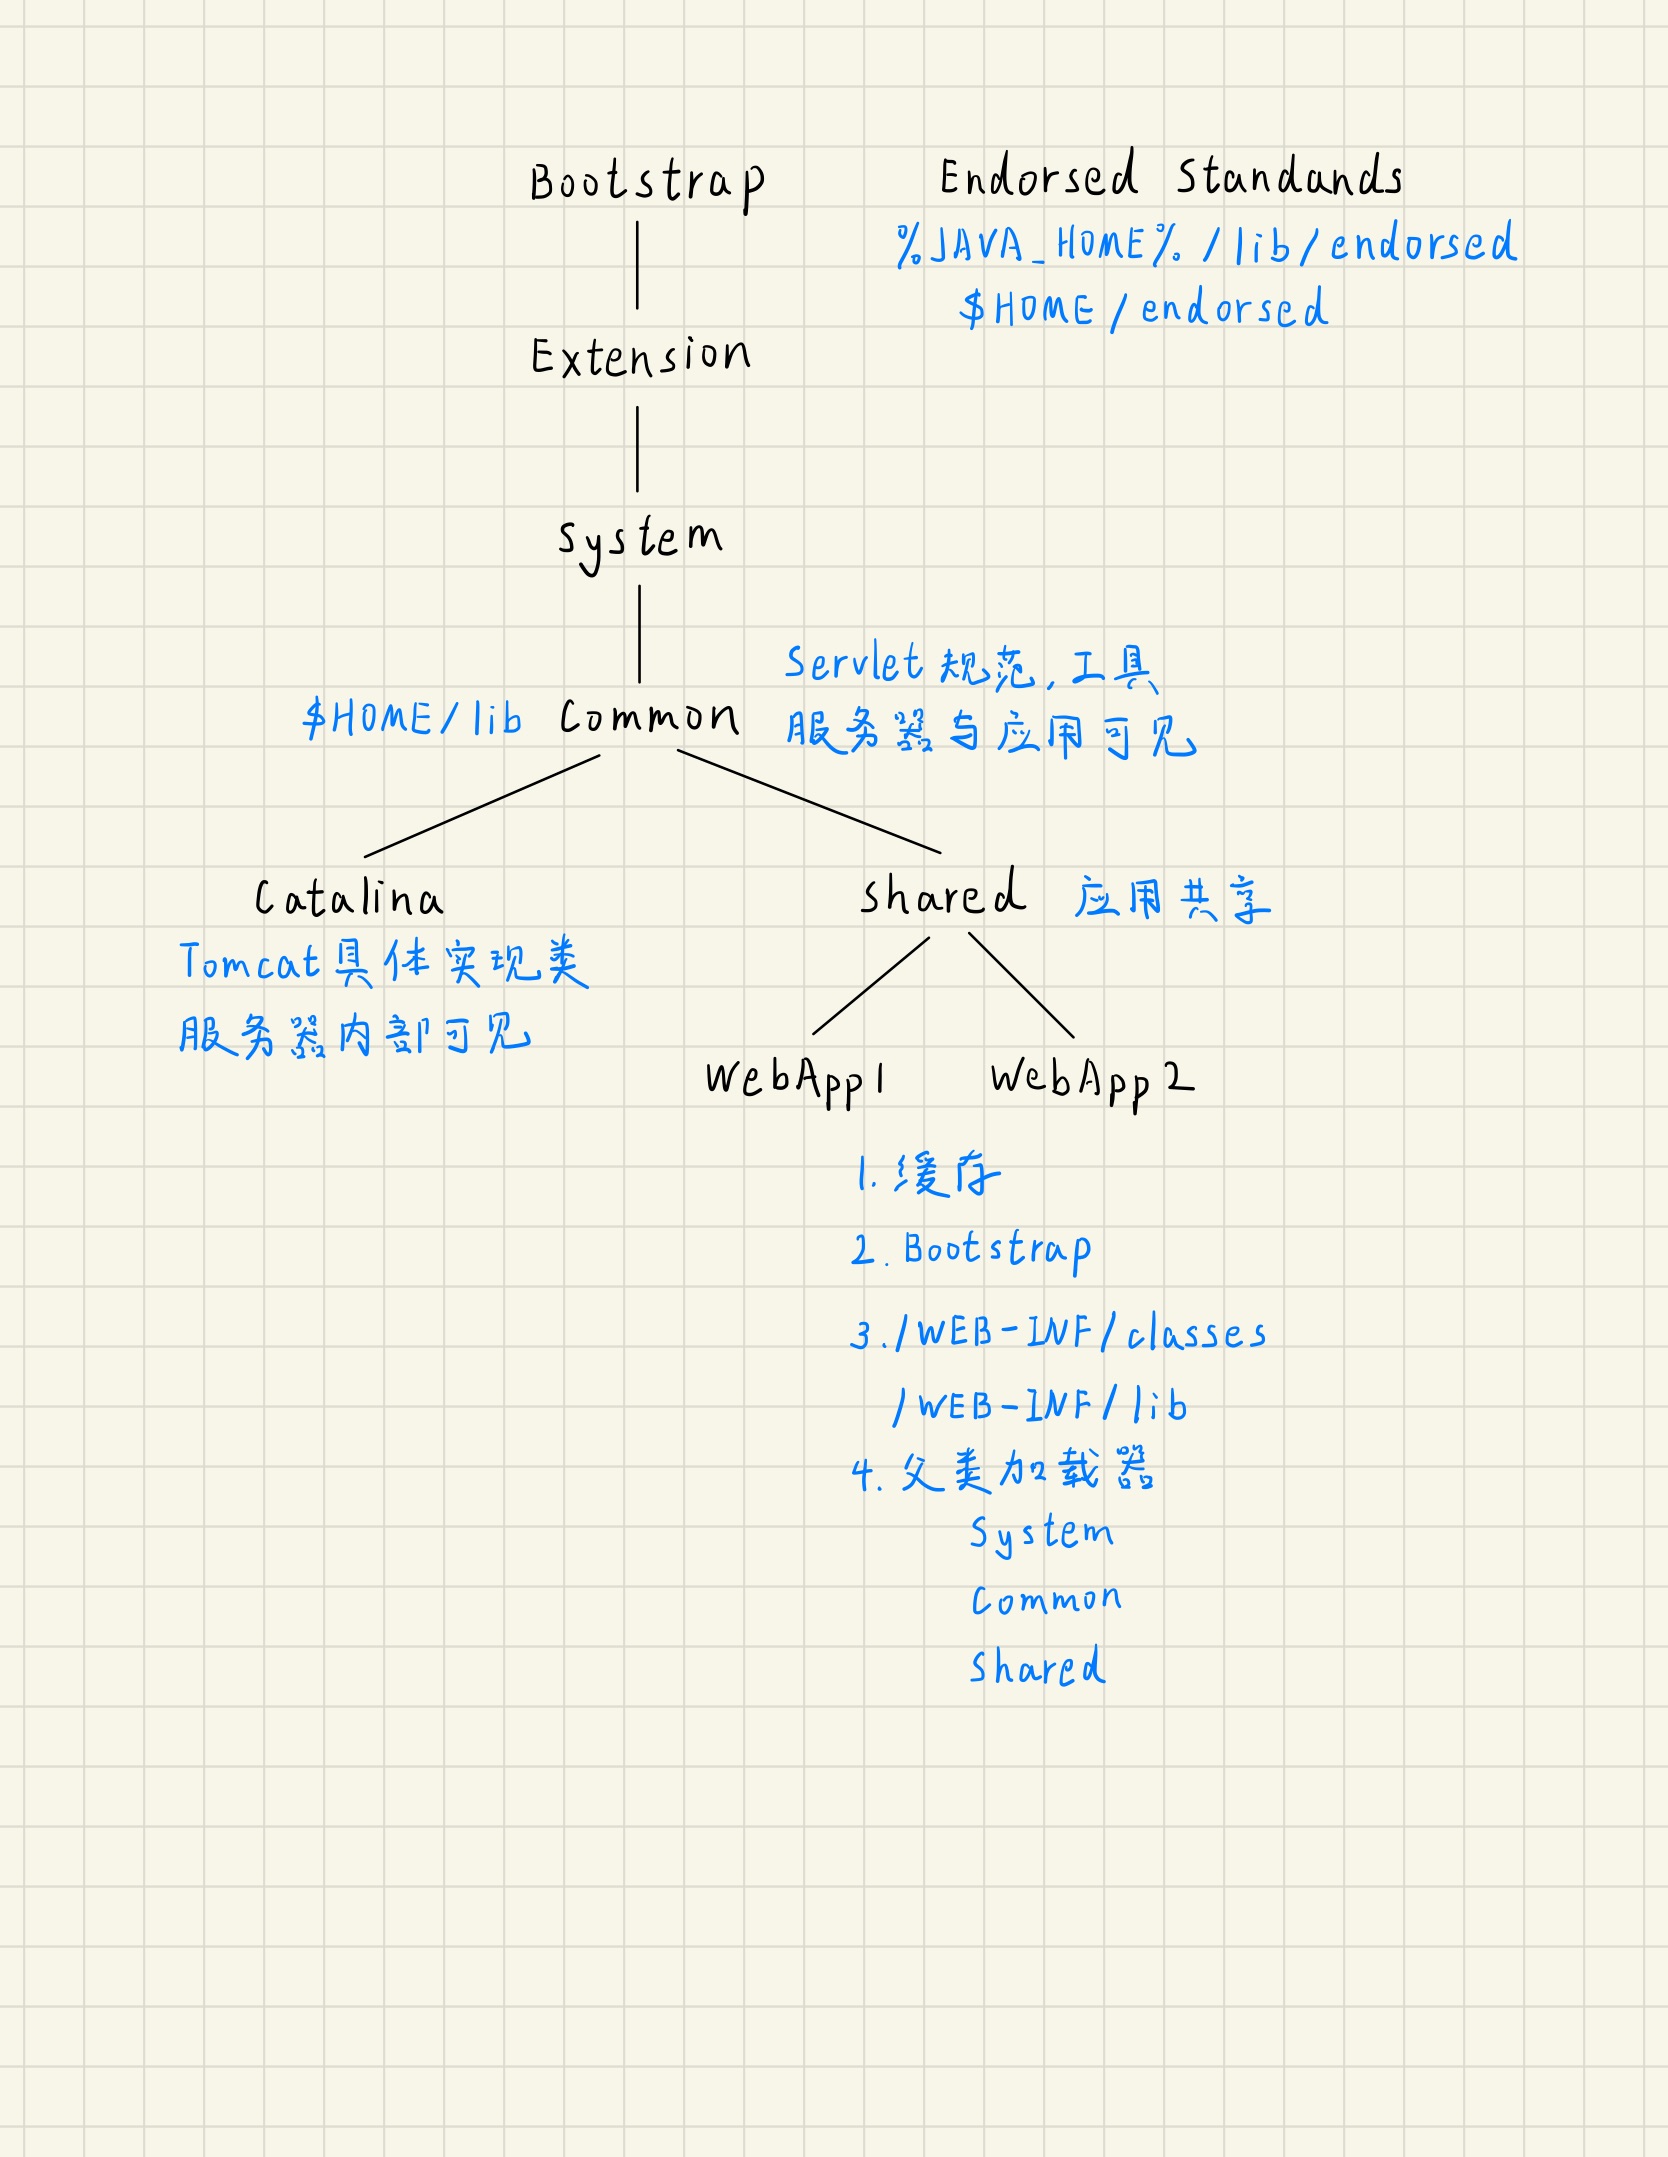 Bootstrap
Endorsed Standands
%JAVA_HOME%/lib/endorsed
$HOME/endorsed
Extension
System
Servlet 规范,工具
服务器与应用可见
$HOME/lib Common
Catalina
Tomcat具体实现类
服务器内部可见
shared 应用共享
WebApp1 WebApp2
1. 缓存
2. Bootstrap
3. /WEB-INF/classes
/WEB-INF/lib
4. 父类加载器
System
Common
Shared